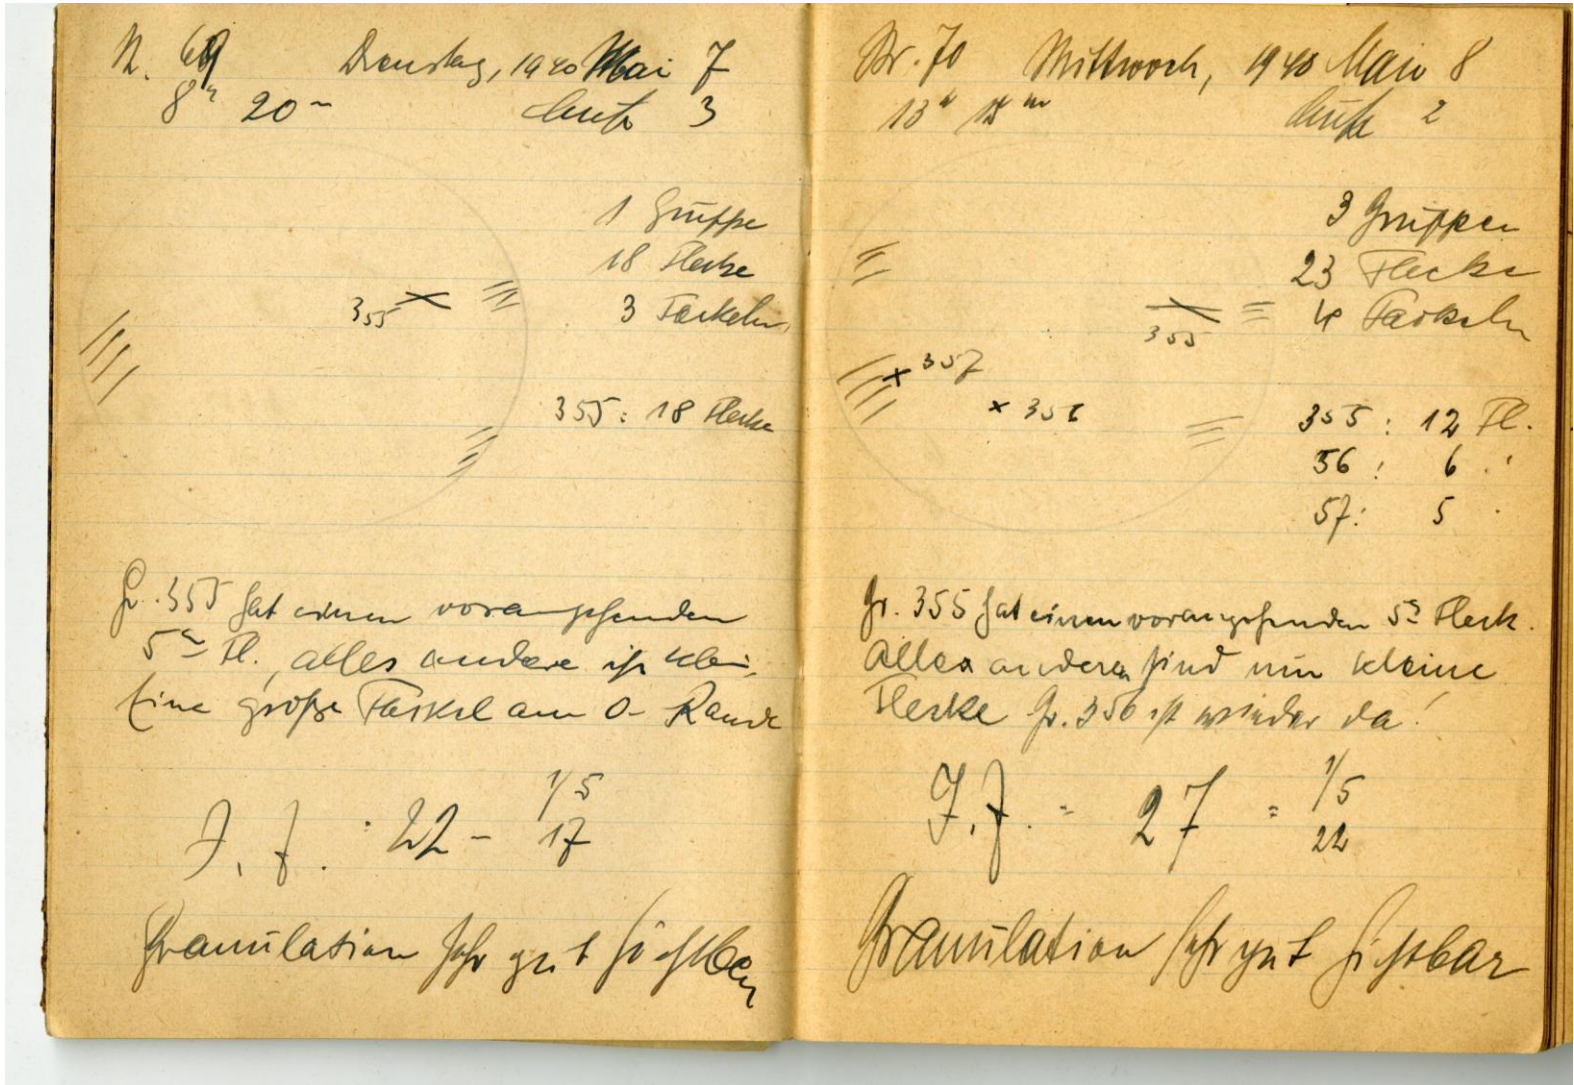 N. 69 Dienstag, 1940 Mai 7
8h 20m Luft 3
1 Gruppe
18 Flecke
355 3 Fackeln
355: 18 Flecke
Gr. 355 hat einen vorangehenden
5" Fl., alles andere ist klein.
Eine große Fackel am O-Rande
1/5
22 - 17
Granulation sehr gut sichtbar
Nr. 70 Mittwoch, 1940 Mai 8
13h Luft 2
3 Gruppen
23 Flecke
355 4 Fackeln
357
356
355: 12 Fl.
56: 6 "
57: 5 "
Gr. 355 hat einen vorangehenden 5" Fleck.
Alles andere sind nur kleine
Flecke Gr. 356 ist wieder da!
1/5
27 = 22
Granulation sehr gut sichtbar